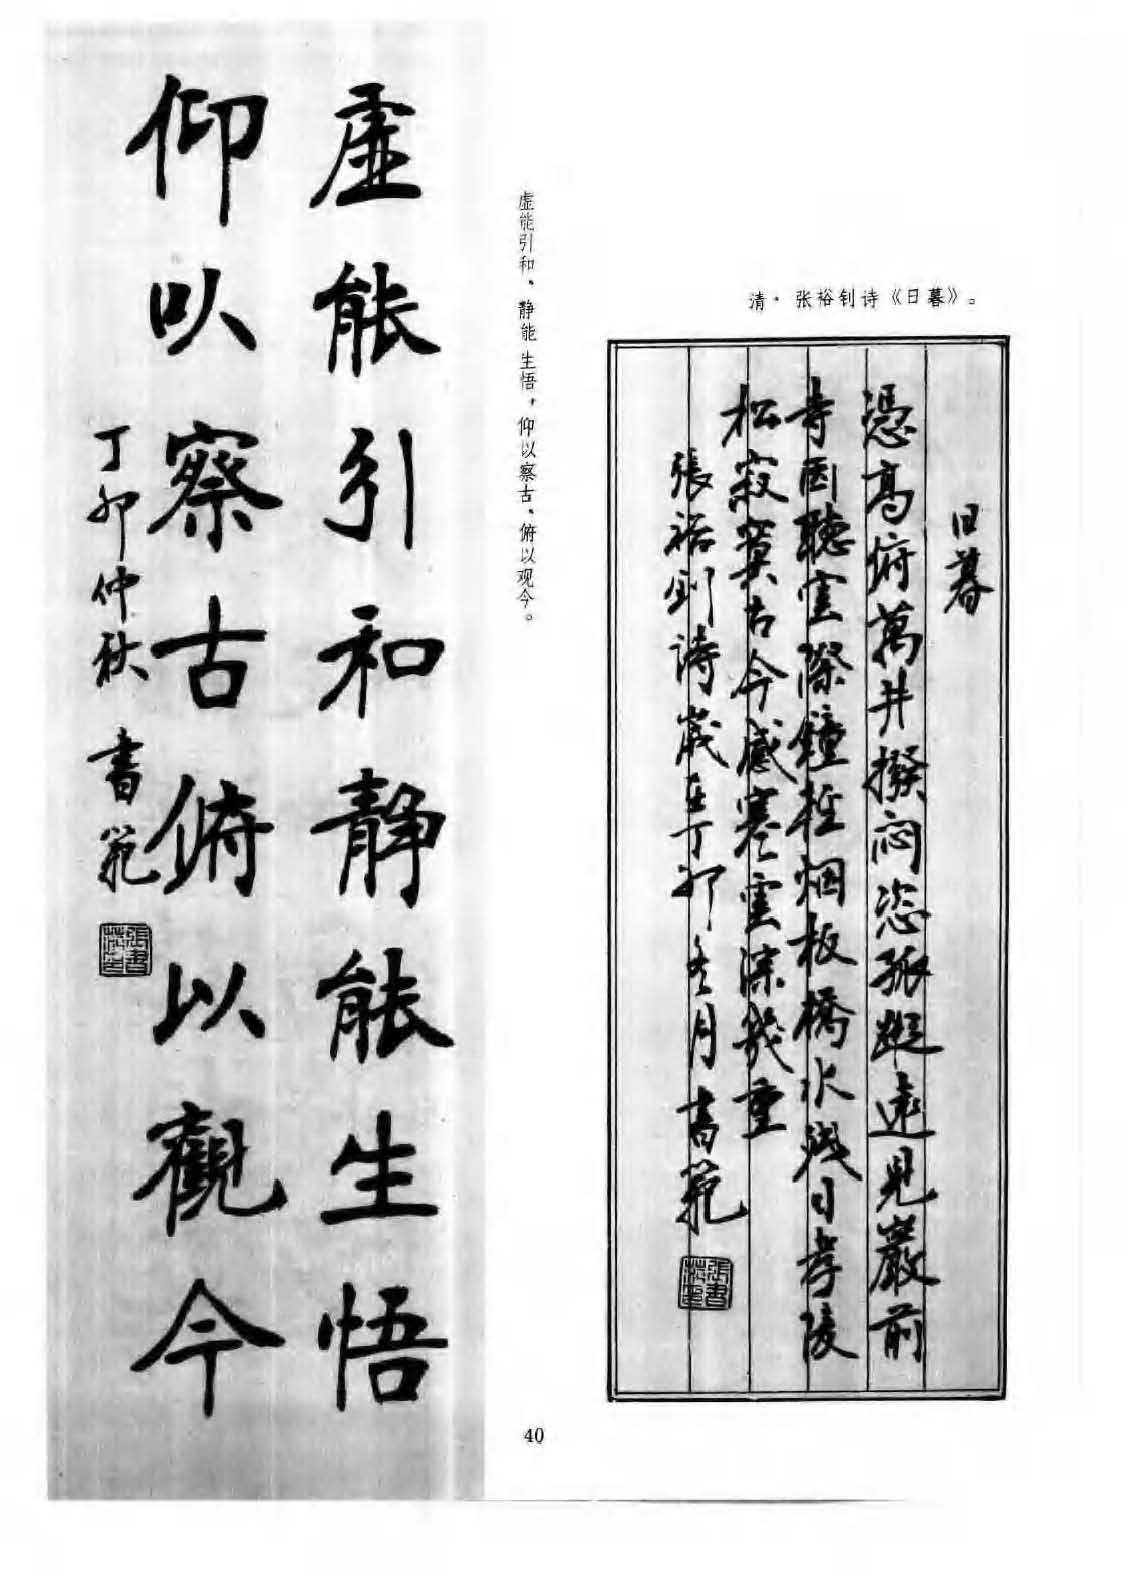 清·张裕钊诗《日暮》。
日暮
憑高俯萬井撥悶恣孤蹤遠見巖前
寺因聽雲際鐘輕烟板橋水殘日孝陵
松寂寞古今感寒雲深幾重
張裕釗詩歲在丁卯冬月書範
張書範印
虚能引和、静能生悟，仰以察古、俯以观今。
虛能引和靜能生悟
仰以察古俯以觀今
丁卯仲秋書範
張書範印
40